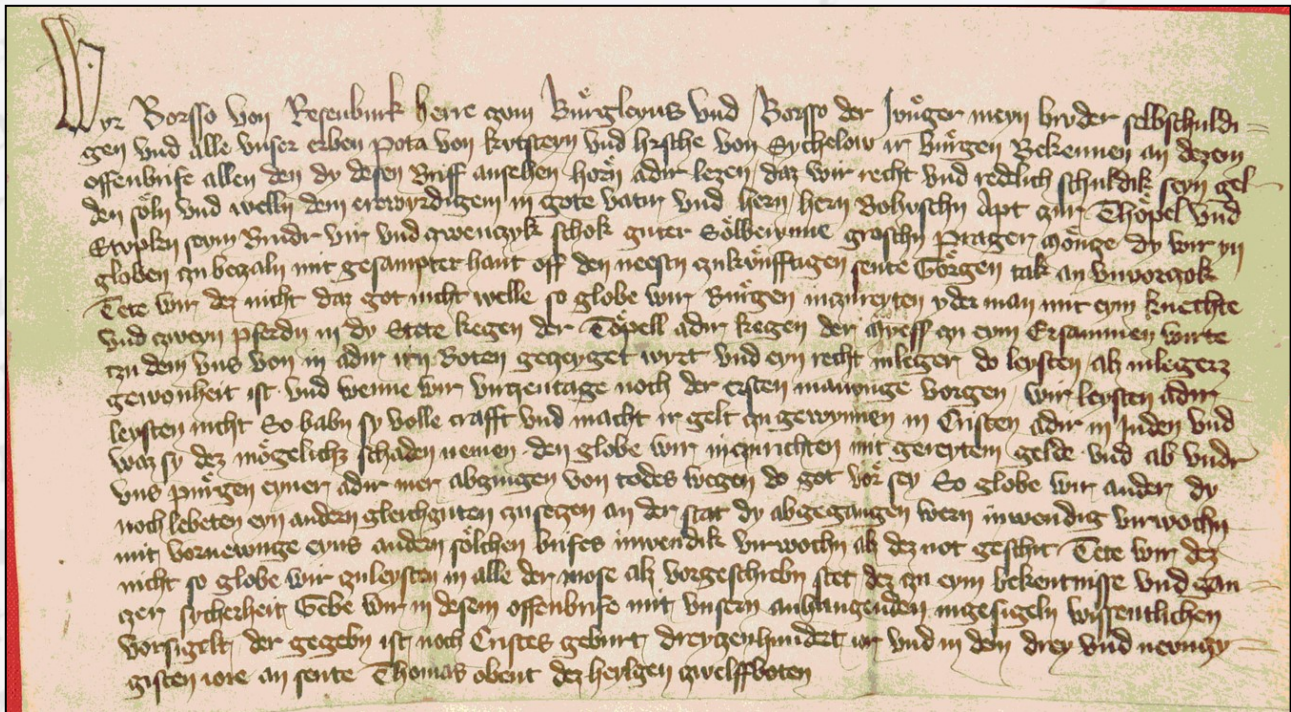 Wyr Borsso von Resenburk herre czum Bürgleyns vnd Borsso der Jünger meyn bruder selbschuldi=
gen vnd alle vnser erben Pota von kytsteyn vnd hrsche von Sychelow ir Bürgen Bekennen an dezem
offenbrife allen den dy desen Briff ansehen hörn adir lezen daz wir recht vnd redlich schuldik seyn gel-
den söln vnd welln dem erewyrdigem in gote vatir vnd hern hern Bohuschn Apt czur Thöpel vnd
seym Brudr vir vnd czwenczyk schok guter Sölberynne groschn Prager Mönze dy wir yn
globen czu beczaln mit gesampter hant off den neestn czukünfftagen sente Görgen tak an vnvorczok
Tete wir dez nicht daz got nicht welle so globe wir Bürgen inczureyten yder man mit eym knechte
vnd czweyn pferdn in dy Stete kegen der Töpell adir kegen der Myess czu eym Ersammen wirte
czu dem vns von in adir irn Boten geczeyget wyrt vnd eyn recht inleger do leysten alz inlegers
gewonheit ist vnd wenne wir virczentage noch der ersten manunge vorgen wir leysten adir
leysten nicht So habn sy volle crafft vnd macht ir gelt czu gewynnen in Cristen adir in Juden vnd
waz sy dez mögelichz schaden nemen den globe wir inczurichten mit gereytem gelde vnd ab vndr
vns pürgen eyner adir mer abgingen von todes wegen do got vör sey So globe wir ander dy
noch lebeten eyn andern gleichguten czusetzen an der stat dy abgegangen wern inwendig virwochn
mit vornewunge eyns andern sölchen brifes inwendik virwochn alz dez not geschit Tete wir dez
nicht so globe wir czuleysten in alle der mose alz vorgeschriebn stet dez czu eym bekentnisse vnd gan-
czer sycherheit Gebe wir in desem offenbrife mit vnsern anhangenden ingesigeln wissentlichen
vorsigelt der gegebn ist noch Cristes geburt dreyczenhundert ior vnd in dem drey vnd newnczy=
gisten iore an sente Thomas obent dez heylgen czwelffboten